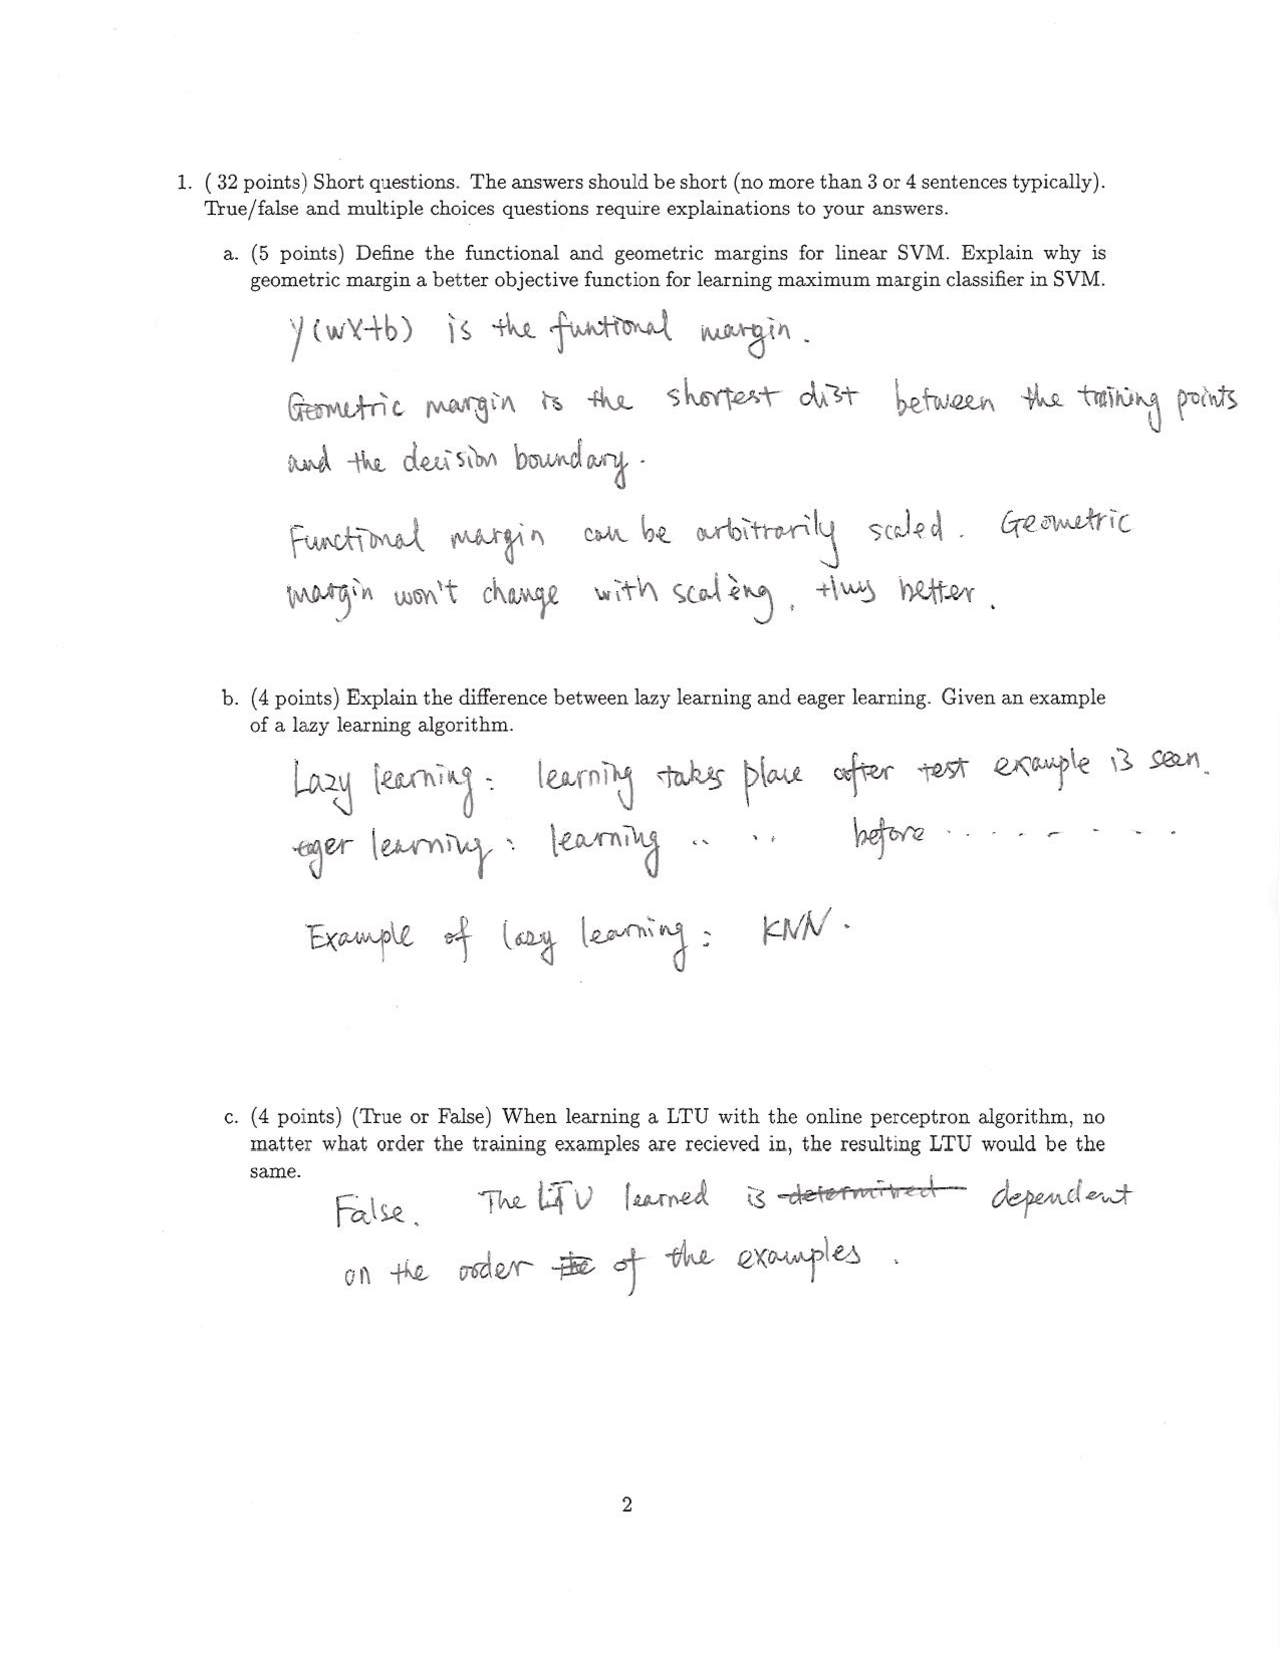 1. ( 32 points) Short questions. The answers should be short (no more than 3 or 4 sentences typically).
True/false and multiple choices questions require explainations to your answers.
a. (5 points) Define the functional and geometric margins for linear SVM. Explain why is
geometric margin a better objective function for learning maximum margin classifier in SVM.
y(wx+b) is the funtional margin.
Geometric margin is the shortest dist between the training points
and the decision boundary.
Functional margin can be arbitrarily scaled. Geometric
margin won't change with scaling, thus better.
b. (4 points) Explain the difference between lazy learning and eager learning. Given an example
of a lazy learning algorithm.
Lazy learning: learning takes place after test example is seen.
eager learning: learning .. .. before . . . . . . . .
Example of lazy learning: KNN.
c. (4 points) (True or False) When learning a LTU with the online perceptron algorithm, no
matter what order the training examples are recieved in, the resulting LTU would be the
same.
False. The LTU learned is determined dependent
on the order the of the examples.
2